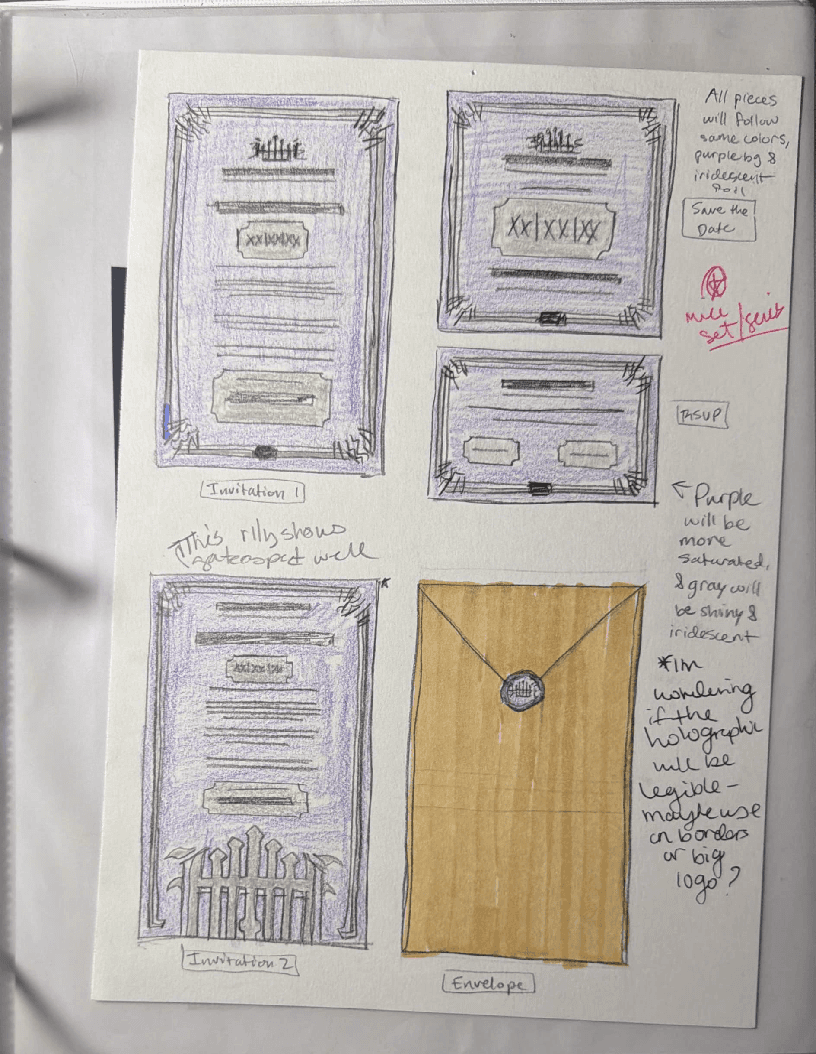 All pieces
will follow
same colors,
purple bg &
iridescent
foil
Save the
Date
XX|XX|XX
XX|XX|XX
nice
set/suite
RSVP
Invitation 1
This rlly shows
gate aspect well
Purple
will be
more
saturated,
& gray will
be shiny &
iridescent
*Im
wondering
if the
holographic
will be
legible-
maybe use
on borders
or big
logo?
XX|XX|XX
Invitation 2
Envelope